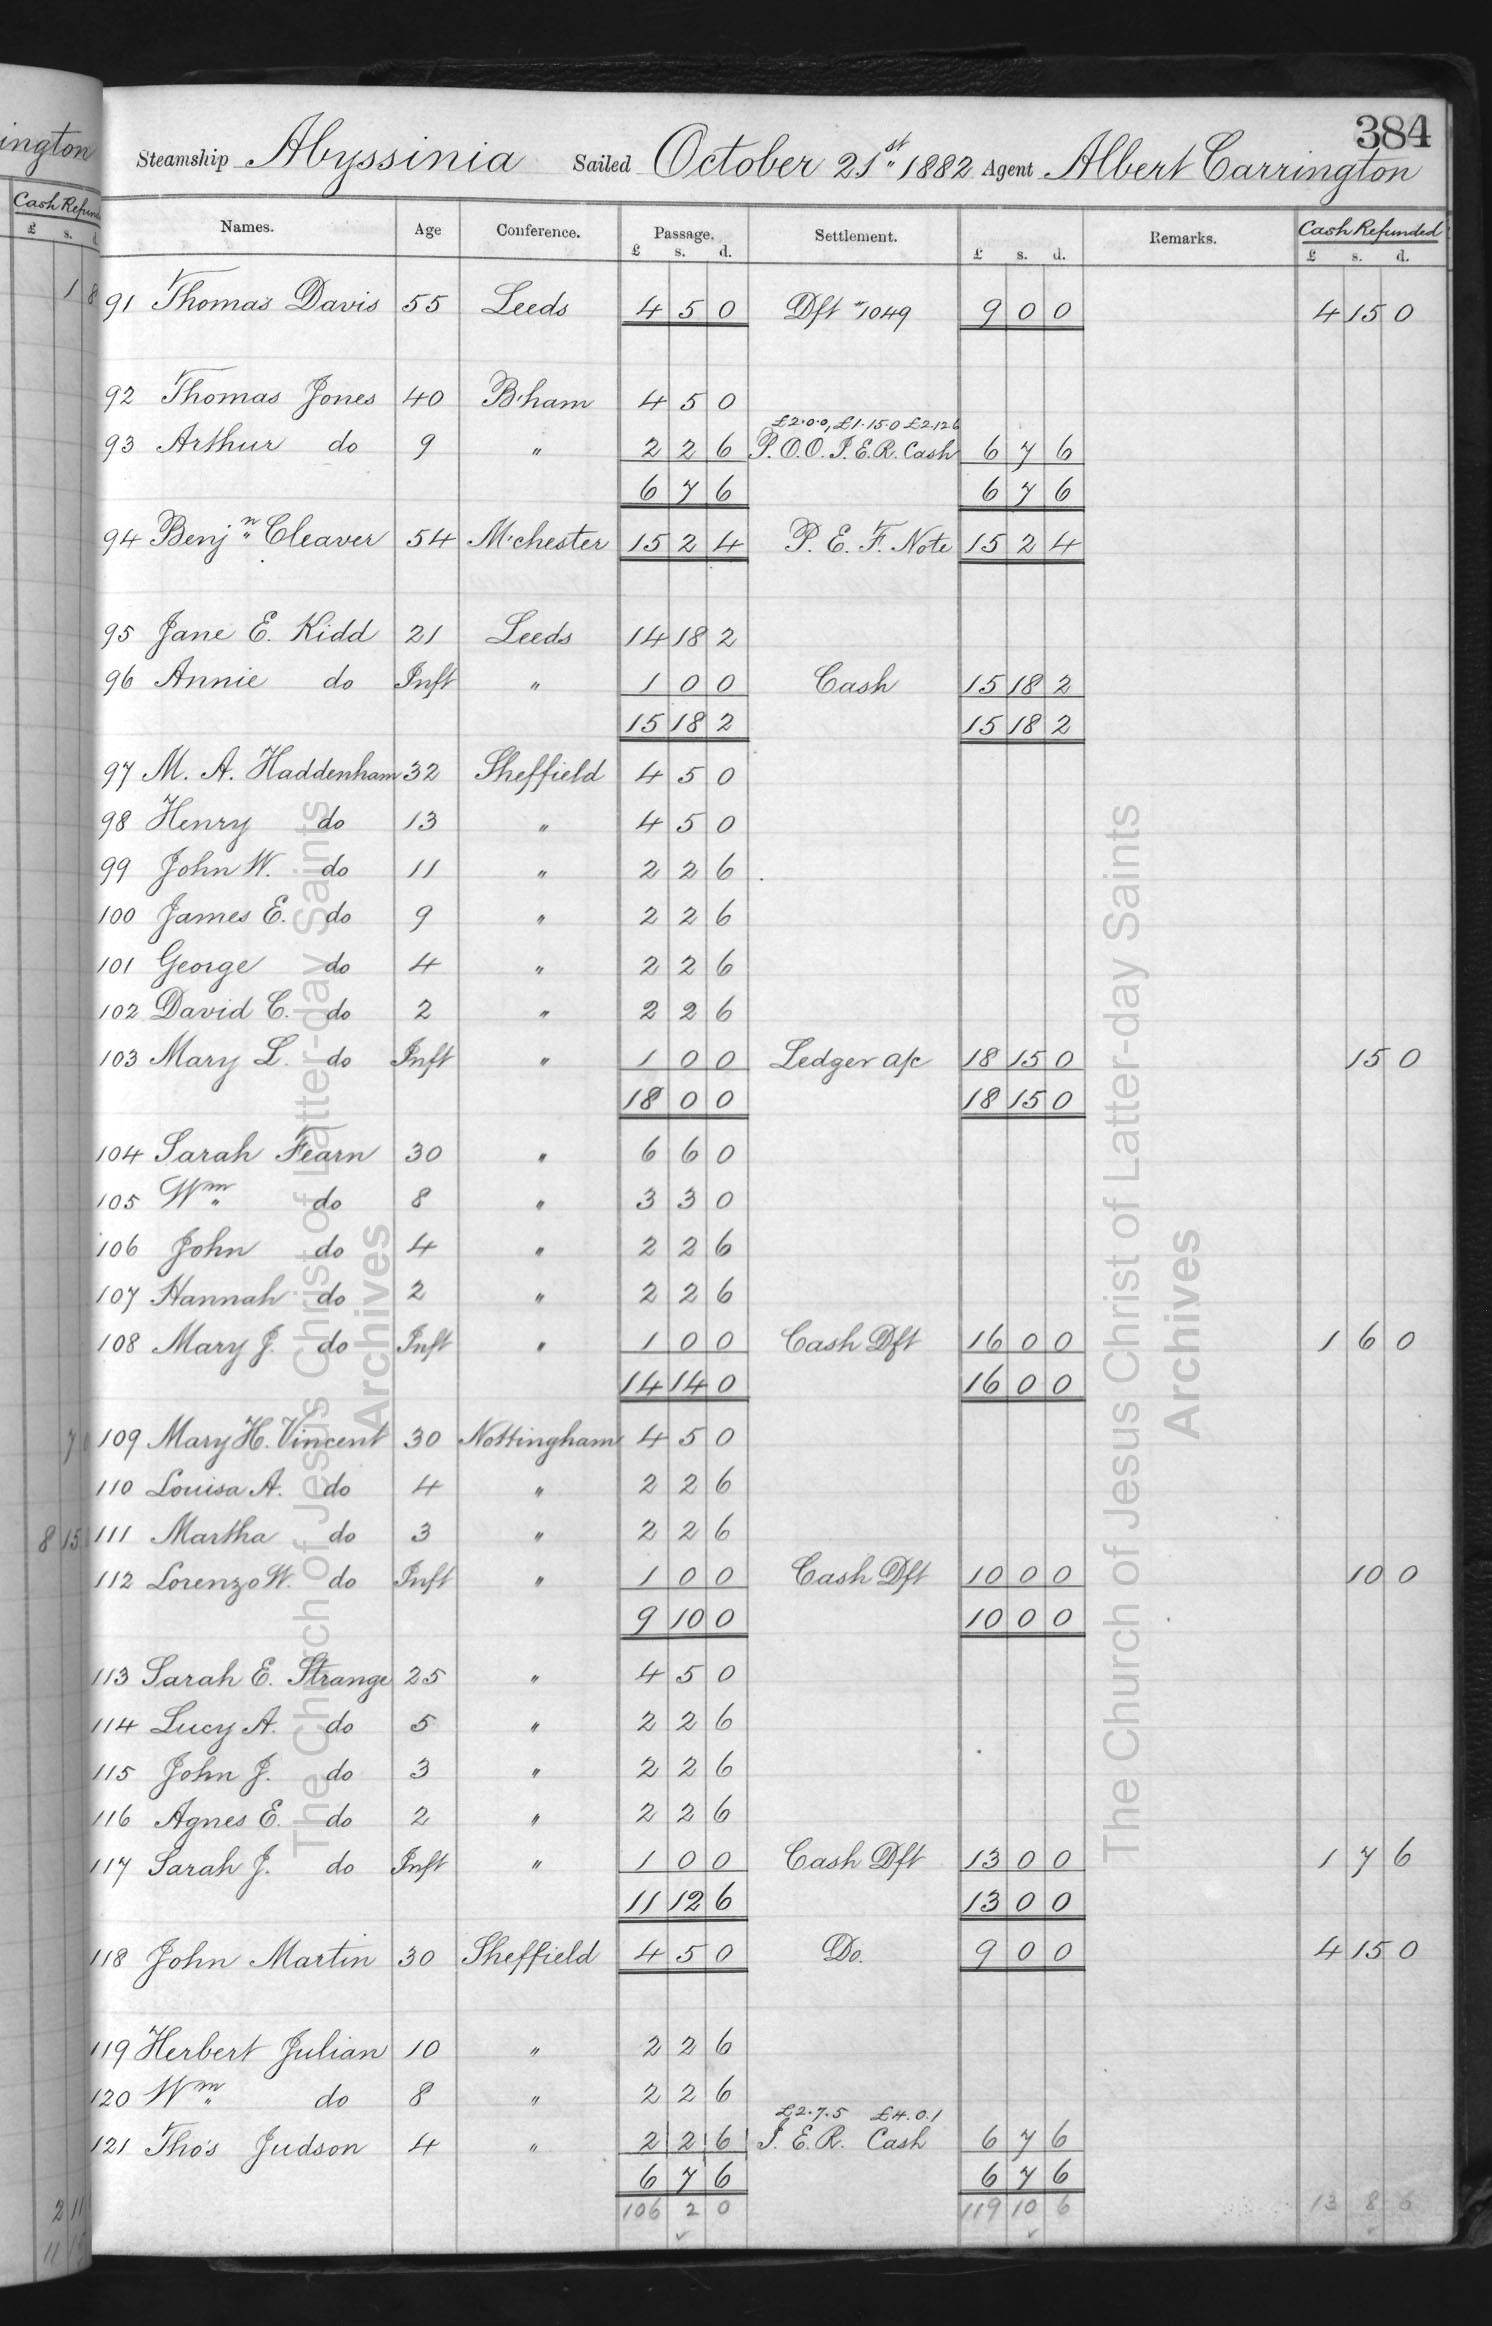 384
Steamship Abyssinia Sailed October 21st 1882 Agent Albert Carrington
Names. Age Conference. Passage. Settlement. Remarks. Cash Refunded
£ s. d. £ s. d. £ s. d.
91 Thomas Davis 55 Leeds 4 5 0 Dft "1049 9 0 0 4 15 0
92 Thomas Jones 40 B'ham 4 5 0
£2.0.0, £1.15.0 £2.12.6
93 Arthur do 9 " 2 2 6 P.O.O. I.E.R. Cash 6 7 6
6 7 6 6 7 6
94 Benjn Cleaver 54 M'chester 15 2 4 P. E. F. Note 15 2 4
95 Jane E. Kidd 21 Leeds 14 18 2
96 Annie do Inft " 1 0 0 Cash 15 18 2
15 18 2 15 18 2
97 M. A. Haddenham 32 Sheffield 4 5 0
98 Henry do 13 " 4 5 0
99 John W. do 11 " 2 2 6
100 James E. do 9 " 2 2 6
101 George do 4 " 2 2 6
102 David C. do 2 " 2 2 6
103 Mary L. do Inft " 1 0 0 Ledger a/c 18 15 0 15 0
18 0 0 18 15 0
104 Sarah Fearn 30 " 6 6 0
105 Wm do 8 " 3 3 0
106 John do 4 " 2 2 6
107 Hannah do 2 " 2 2 6
108 Mary J. do Inft " 1 0 0 Cash Dft 16 0 0 1 6 0
14 14 0 16 0 0
109 Mary H. Vincent 30 Nottingham 4 5 0
110 Louisa A. do 4 " 2 2 6
111 Martha do 3 " 2 2 6
112 Lorenzo W. do Inft " 1 0 0 Cash Dft 10 0 0 10 0
9 10 0 10 0 0
113 Sarah E. Strange 25 " 4 5 0
114 Lucy A. do 5 " 2 2 6
115 John J. do 3 " 2 2 6
116 Agnes E. do 2 " 2 2 6
117 Sarah J. do Inft " 1 0 0 Cash Dft 13 0 0 1 7 6
11 12 6 13 0 0
118 John Martin 30 Sheffield 4 5 0 Do. 9 0 0 4 15 0
119 Herbert Julian 10 " 2 2 6
120 Wm do 8 " 2 2 6
£2.7.5 £4.0.1
121 Thos Judson 4 " 2 2 6 I. E. R. Cash 6 7 6
6 7 6 6 7 6
106 2 0 119 10 6 13 8 6
The Church of Jesus Christ of Latter-day Saints
Archives
The Church of Jesus Christ of Latter-day Saints
Archives